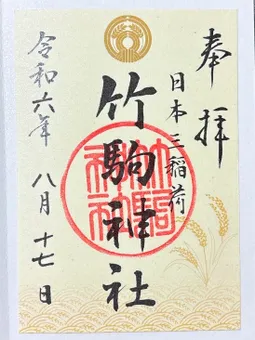 奉拝
日本三稲荷
竹駒神社
令和六年 八月 十七日
竹駒神社